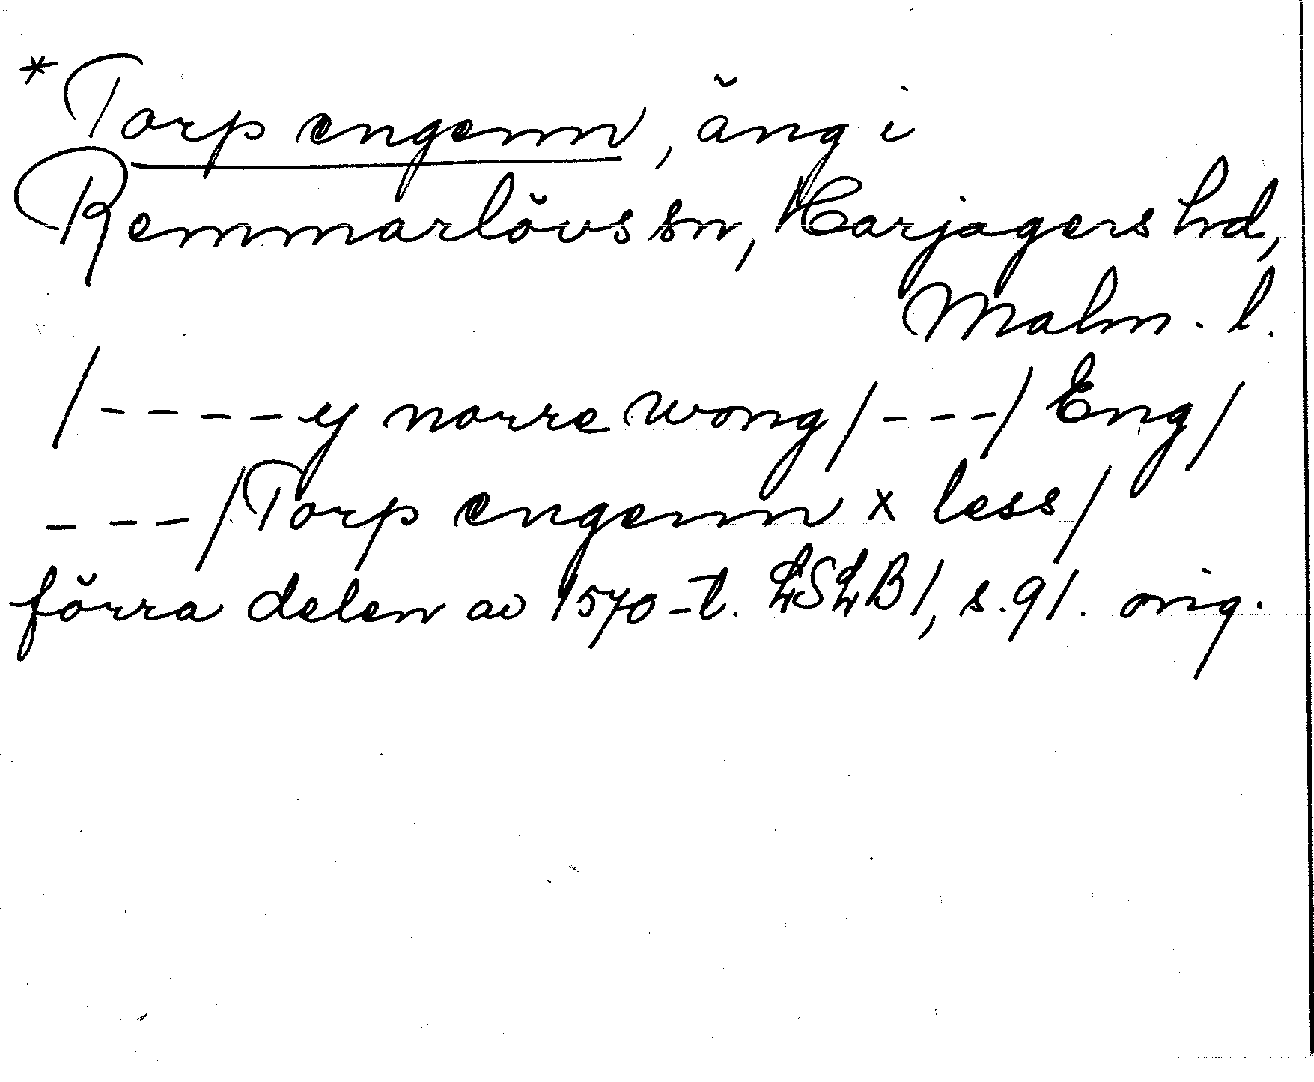 *Torp engenn, äng i
Remmarlövs sn, Harjagers hd,
Malm. l.
/----y norre wong/---/Eng/
---/Torp engenn x less/
förra delen av 1570-t. LSLB1, s. 91. orig.